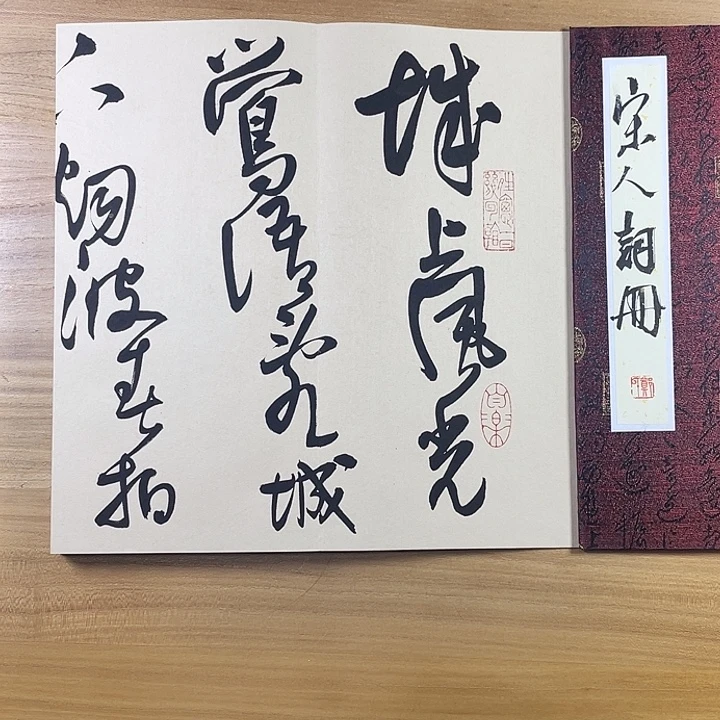 宋人詞冊
城上風光
鶯語亂城
下烟波春拍